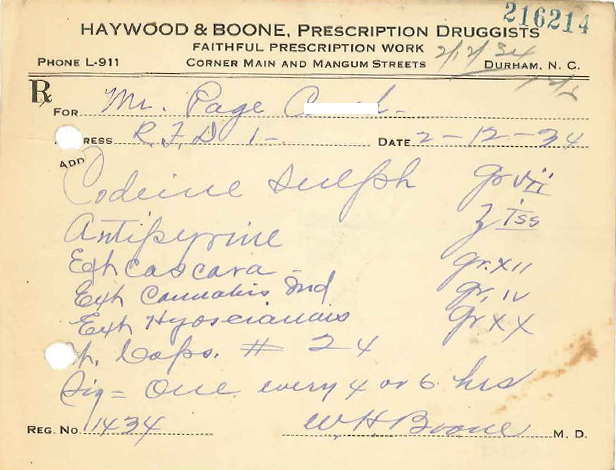 216214
HAYWOOD & BOONE, PRESCRIPTION DRUGGISTS
FAITHFUL PRESCRIPTION WORK
PHONE L-911 CORNER MAIN AND MANGUM STREETS DURHAM, N. C.
2/12/34
℞
FOR Mr. Page
RESS R.F.D 1- DATE 2-12-34
ADD
Codeine Sulph gr vii
Antipyrine ʒ iss
Ext cascara gr. xii
Ext Cannabis Ind gr. iv
Ext Hyosciamus gr xx
Caps. # 24
Sig = One every 4 or 6 hrs
REG. NO. 1434 W.H. Boone M. D.